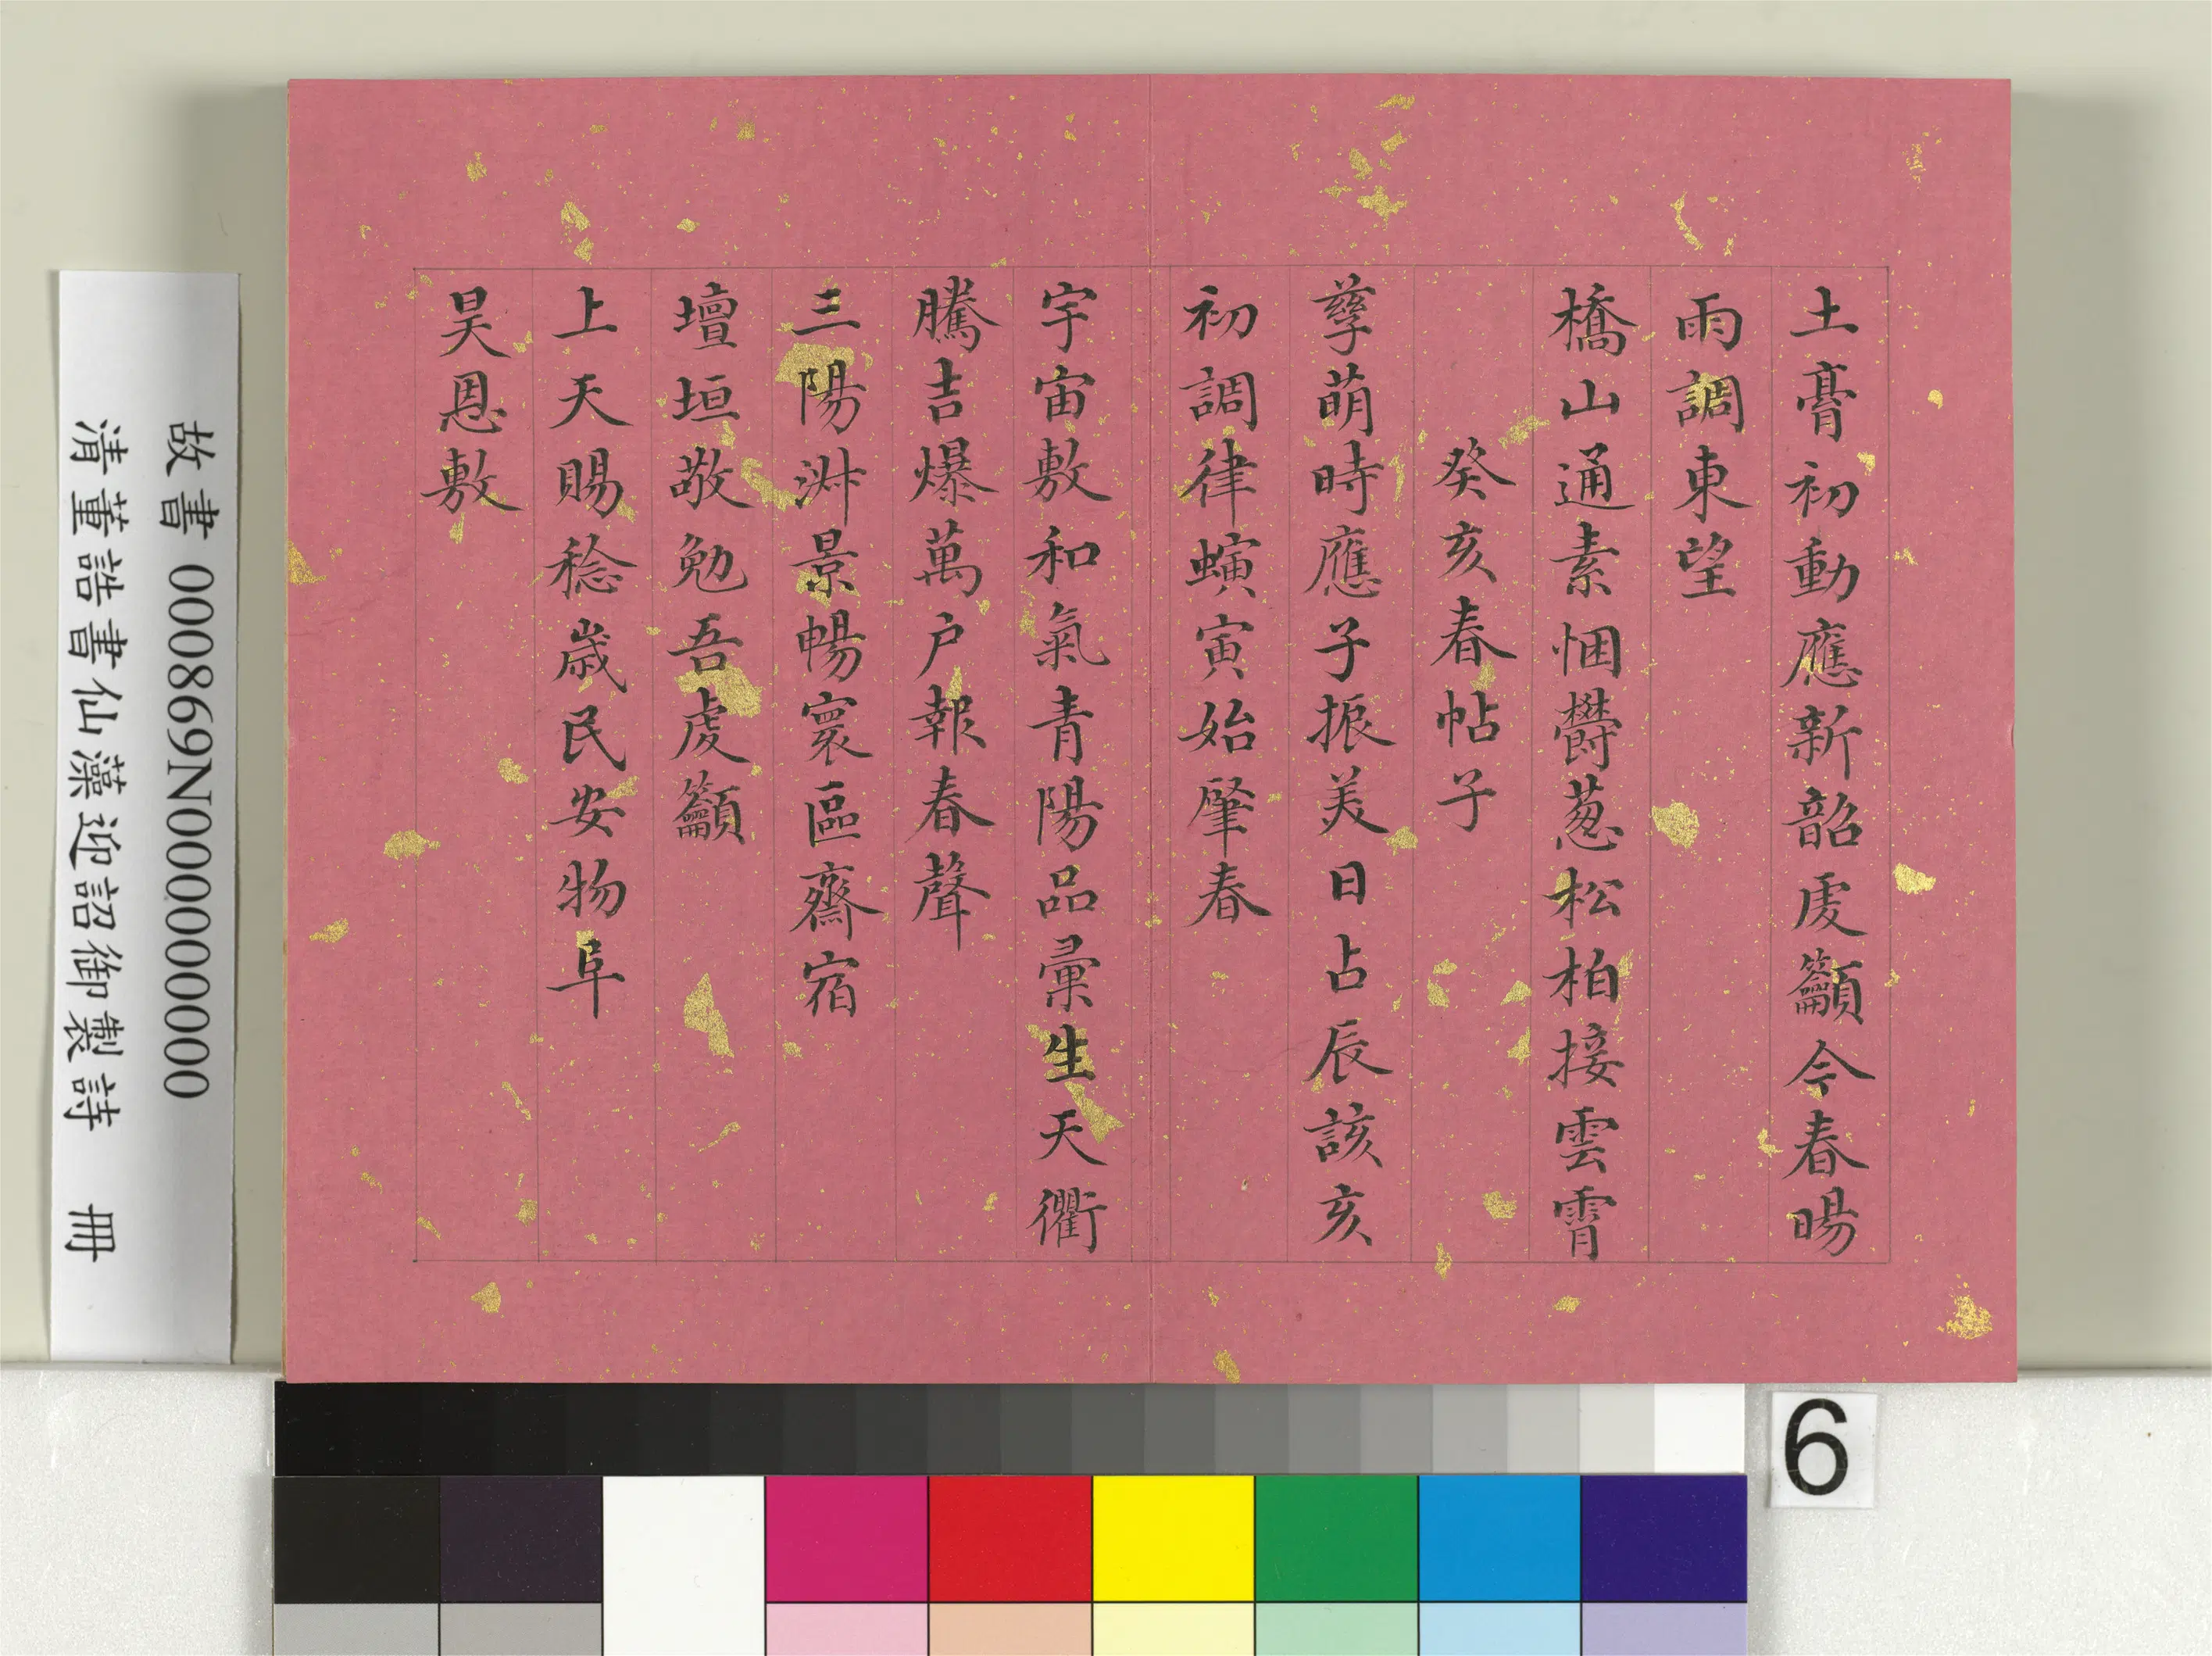 土膏初動應新韶虔籲今春暘
雨調東望
橋山通素悃欎葱松柏接雲霄
癸亥春帖子
孳萌時應子振美日占辰該亥
初調律螾寅始肇春
宇宙敷和氣青陽品彙生天衢
騰吉爆萬户報春聲
三陽淑景暢寰區齋宿
壇垣敬勉吾虔籲
上天賜稔歲民安物阜
昊恩敷
故書 000869N000000000
清董誥書仙藻迎詔御製詩 冊
6